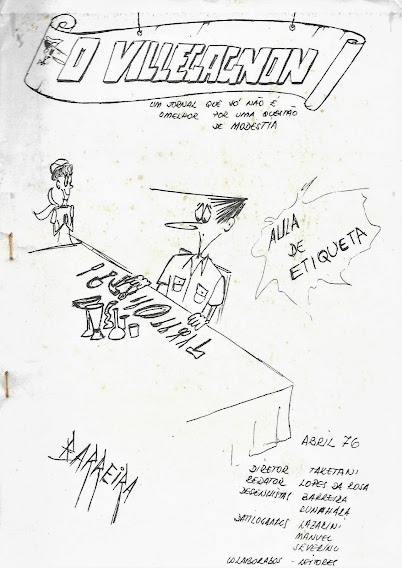 O VILLEGAGNON
UM JORNAL QUE SÓ NÃO É
O MELHOR POR UMA QUESTÃO
DE MODÉSTIA
AULA
DE
ETIQUETA
BARREIRA
ABRIL 76
DIRETOR TAKETANI
REDATOR LOPES DA ROSA
DESENHISTAS BARREIRA
CUNAHARA
DATILOGRAFOS LAZARINI
MANUEL
SEVERINO
COLABORADOS - LEITORES